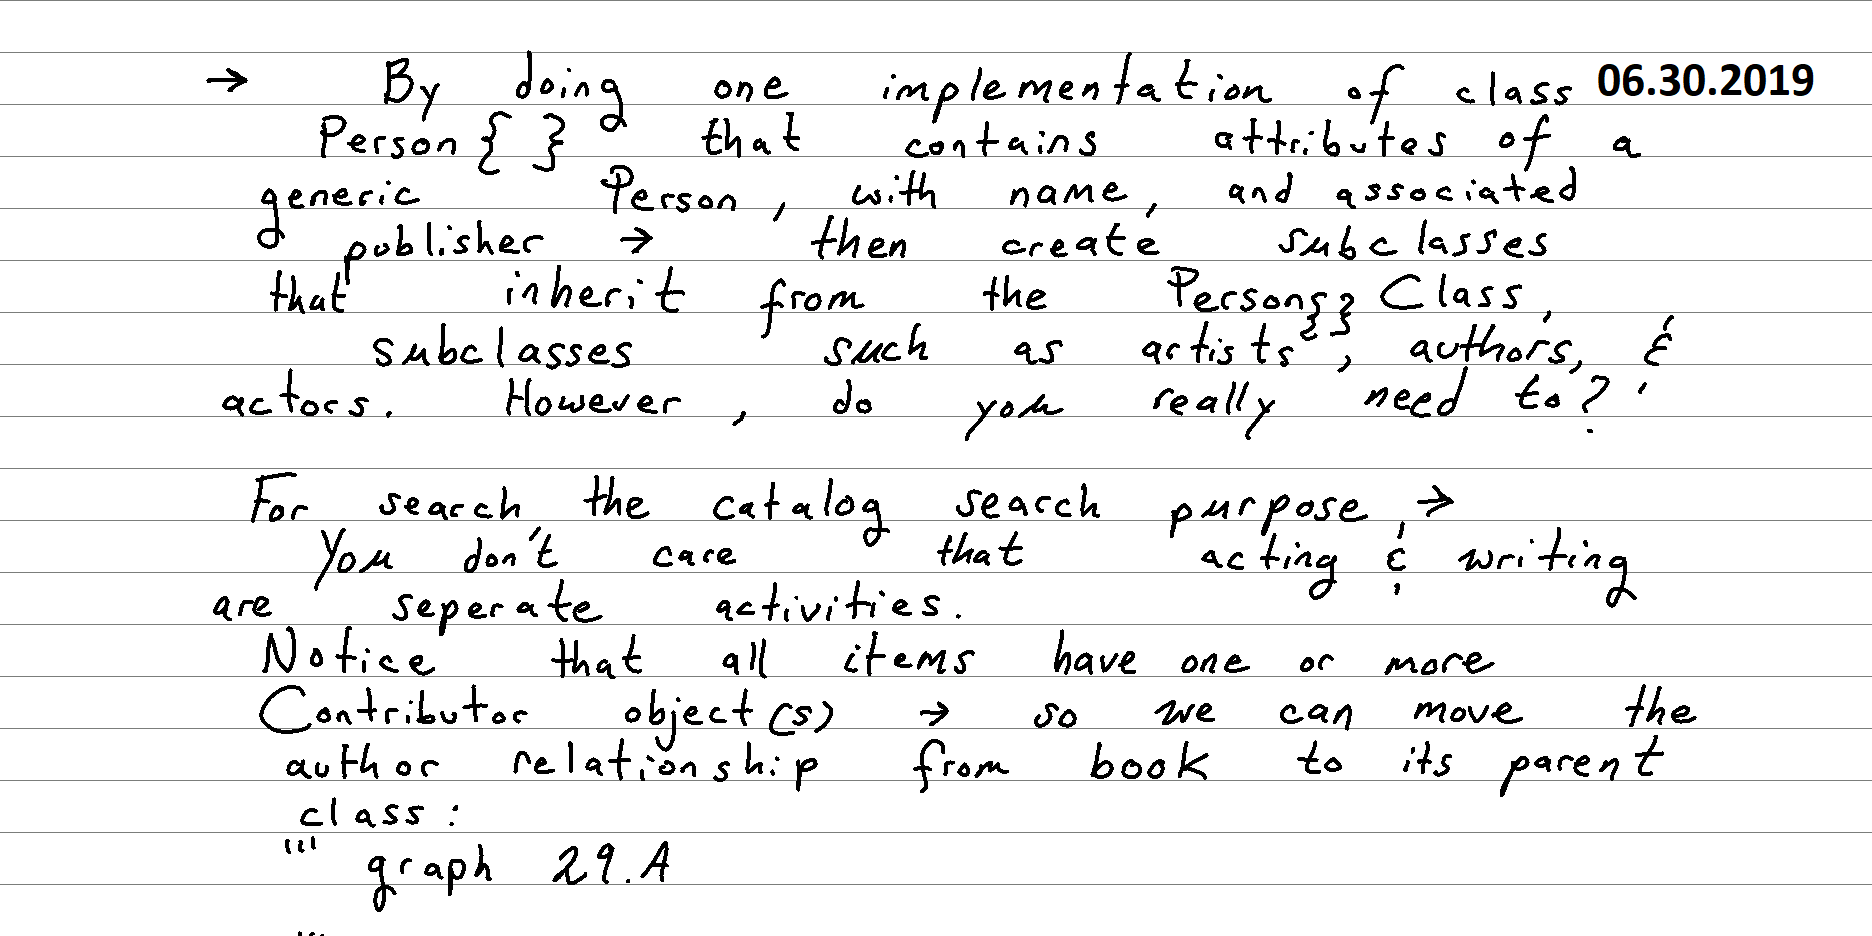 → By doing one implementation of class 06.30.2019
Person { } that contains attributes of a
generic Person, with name, and associated
publisher → then create subclasses
that inherit from the Person{} Class,
subclasses such as artists, authors, &
actors. However, do you really need to?
For search the catalog search purpose, →
You don't care that acting & writing
are seperate activities.
Notice that all items have one or more
Contributor object(s) → so we can move the
author relationship from book to its parent
class:
''' graph 29.A
'''